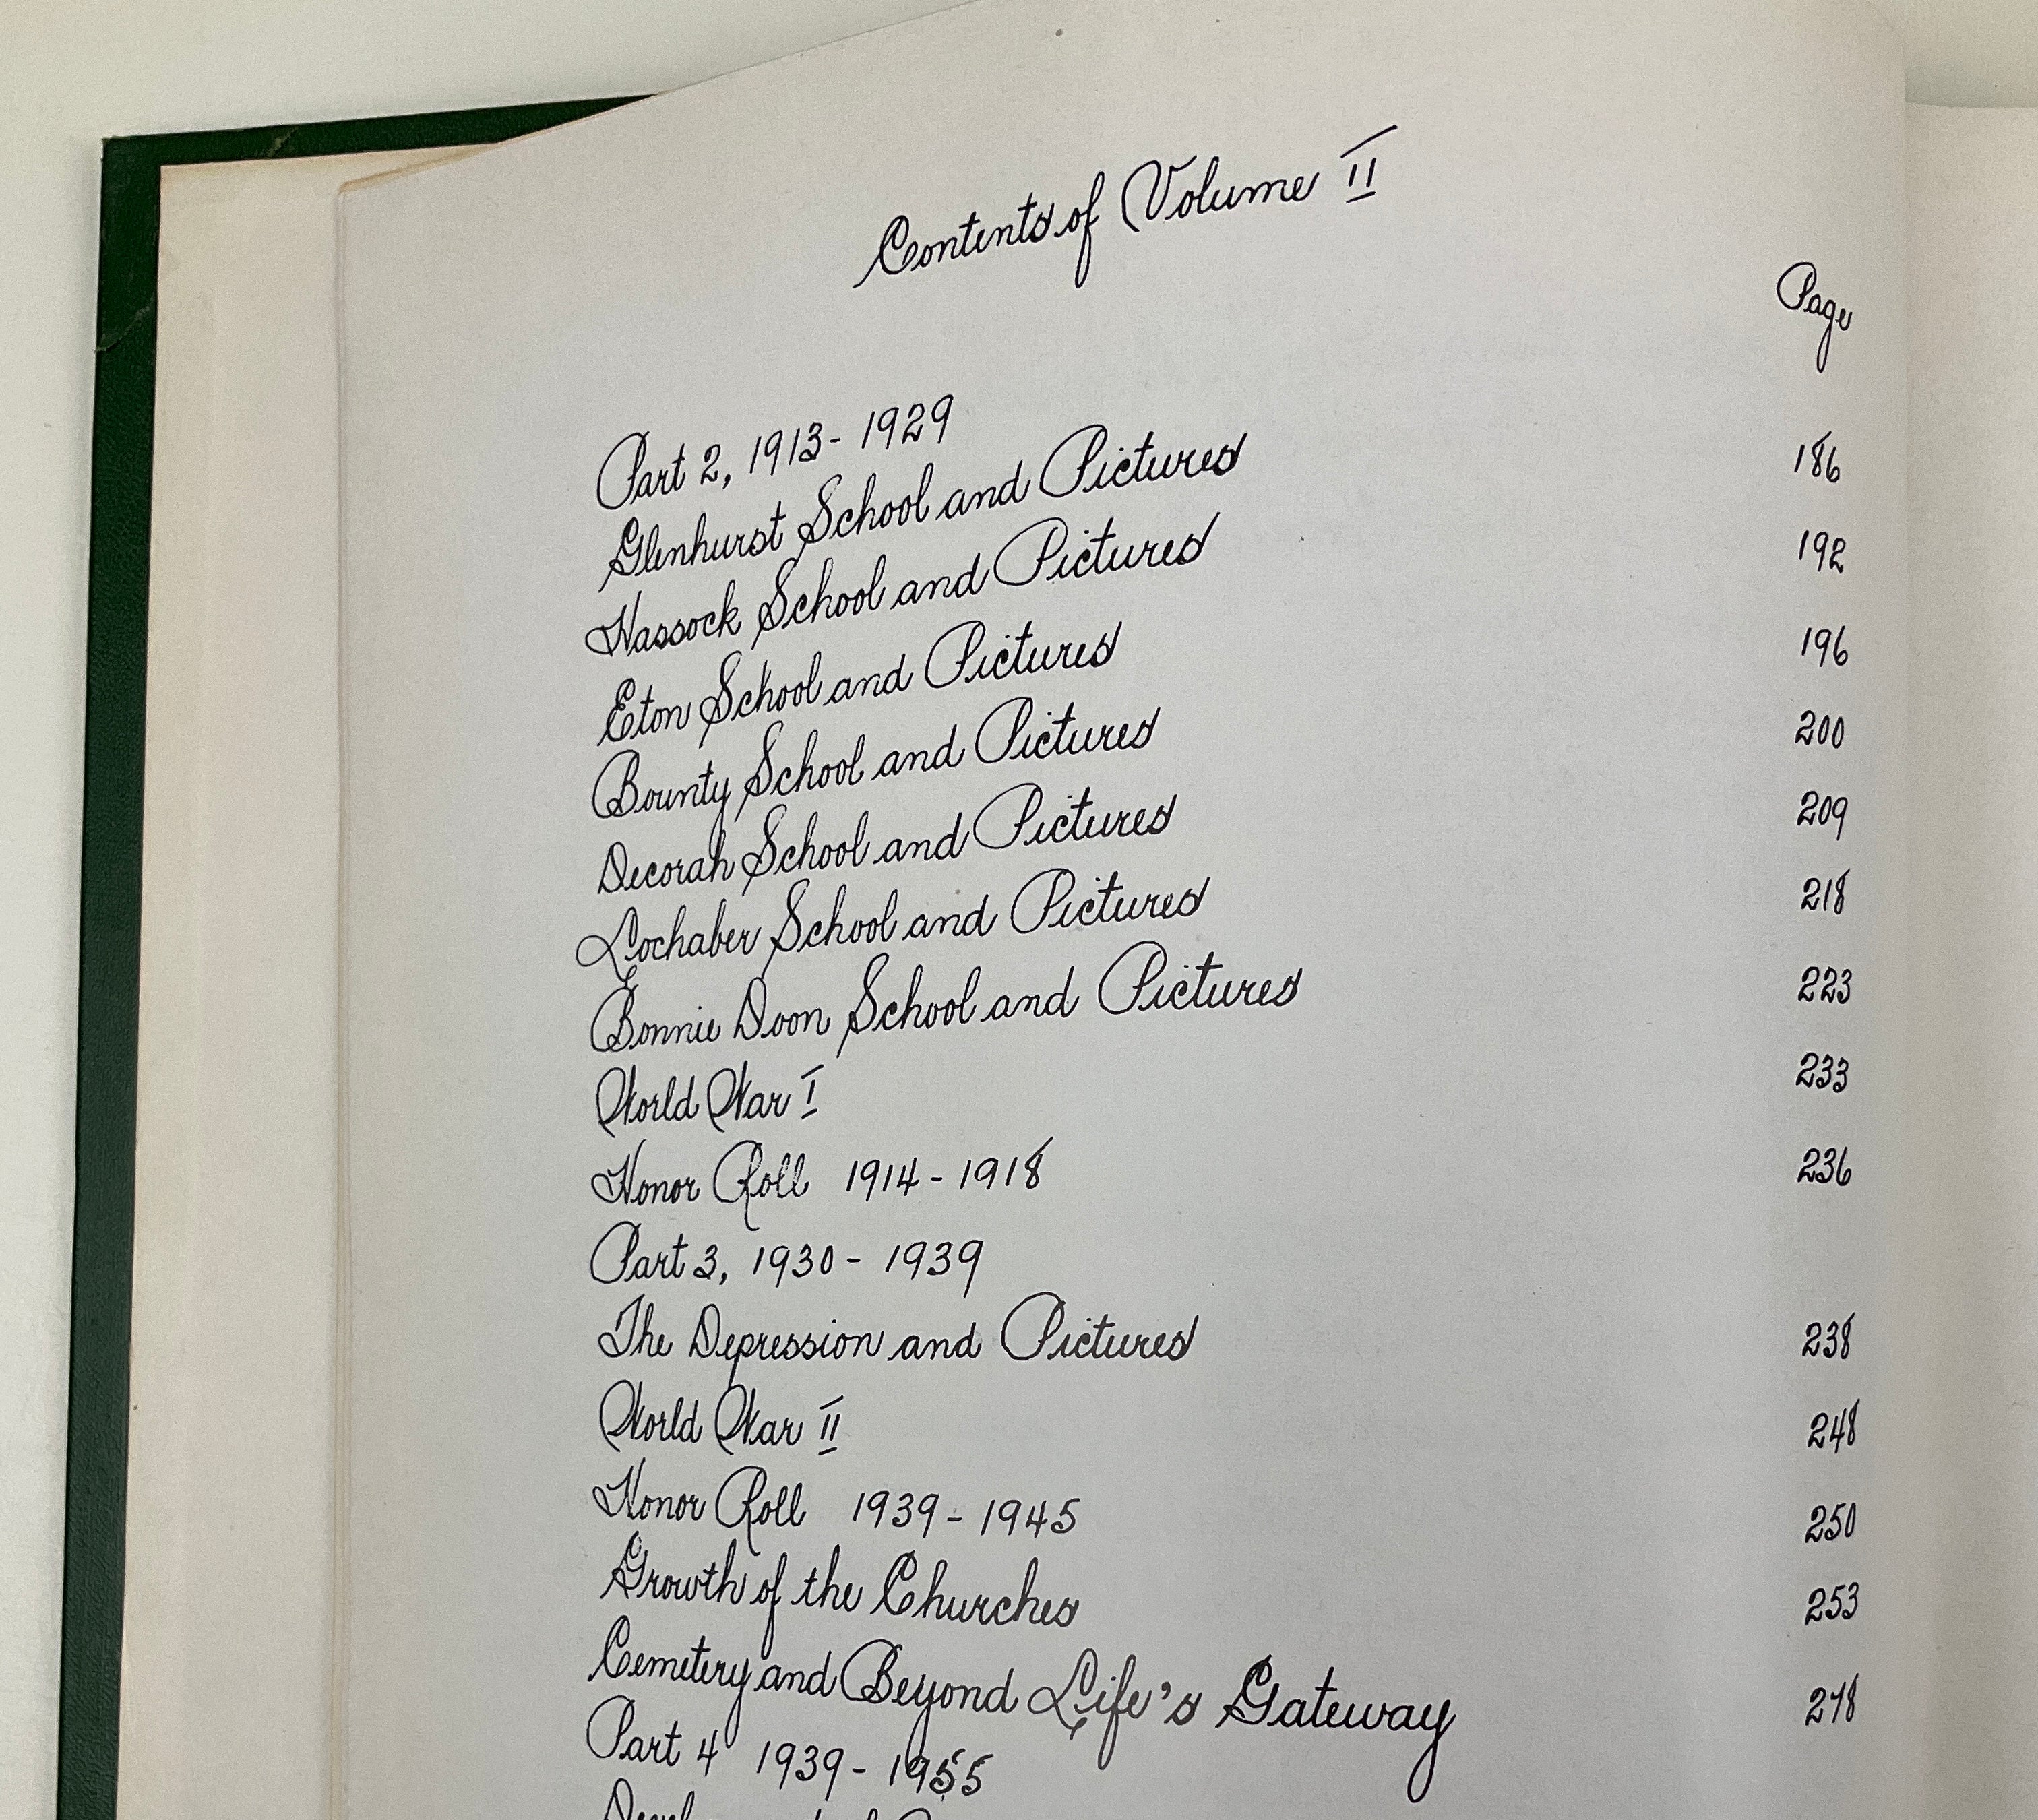 Contents of Volume II
Page
Part 2, 1913 - 1929
Glenhurst School and Pictures 186
Hassock School and Pictures 192
Eton School and Pictures 196
Bounty School and Pictures 200
Decorah School and Pictures 209
Lochaber School and Pictures 218
Bonnie Doon School and Pictures 223
World War I 233
Honor Roll 1914 - 1918 236
Part 3, 1930 - 1939
The Depression and Pictures 238
World War II 248
Honor Roll 1939 - 1945 250
Growth of the Churches 253
Cemetery and Beyond Life's Gateway 278
Part 4 1939 - 1955